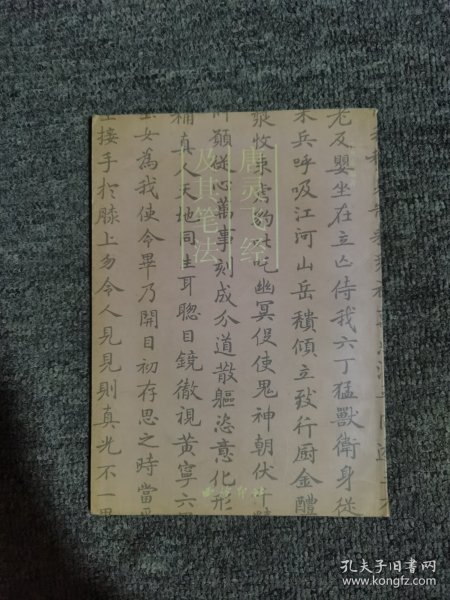 唐灵飞经
及其笔法
老及嬰坐在立亡侍我六丁猛獸衛身從
朱兵呼吸江河山岳穨傾立致行厨金醴
幽冥促使鬼神朝伏千
所願從心萬事刻成分道散軀恣意化形
補真人天地同生耳聰目鏡徹視黄寧六
玉女為我使令畢乃開目初存思之時當平
接手於膝上勿令人見見則真光不一思
孔夫子旧书网
www.kongfz.com